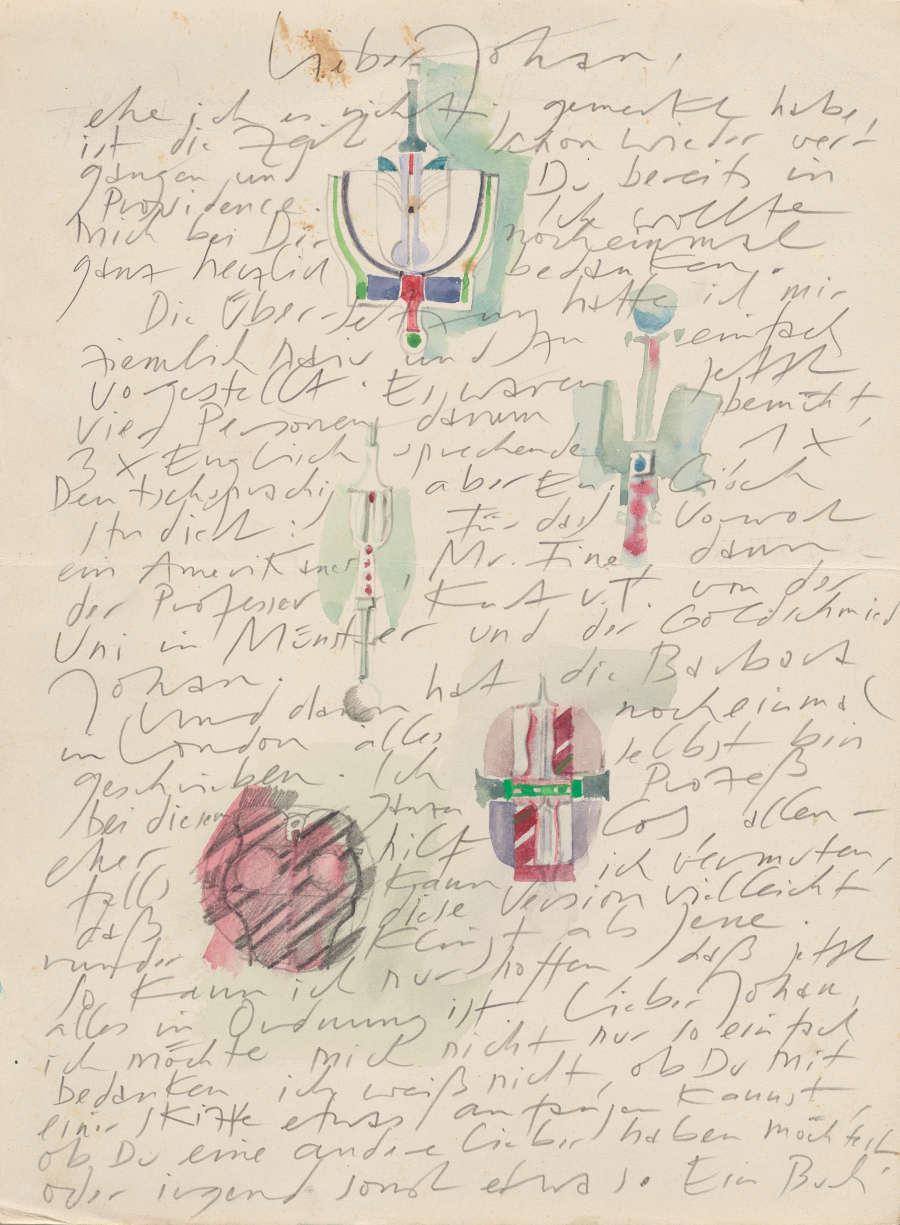 Lieber Johan,
ehe ich es nicht, gemerkt habe,
ist die Zeit schon wieder ver-
gangen und Du bereits in
Providence. Ich wollte
mich bei Dir nocheinmal
ganz herzlich bedanken.
Die Übersetzung hatte ich mir
ziemlich naiv und zu einfach
vorgestellt. Es waren jetzt
vier Personen darum bemüht,
3 x Englisch sprechende 1 x
Deutschsprachig aber Englisch
studiert: Für das Vorwort
ein Amerikaner, Mr. Fine, dann
der Professor, Kunst v.T. von der
Uni in Münster und der Goldschmied
Johan.
Und dann hat die Barbara
in London alles nocheinmal
geschrieben. Ich selbst bin
bei diesem ganzen Prozeß
eher hilflos allen-
falls kann ich vermuten,
daß diese Version vielleicht
runder klingt als jene.
So kann ich nur hoffen, daß jetzt
alles in Ordnung ist Lieber Johan,
ich möchte mich nicht nur so einfach
bedanken ich weiß nicht, ob Du mit
einer Skizze etwas anfangen kannst,
ob Du eine andere lieber haben möchtest
oder irgend sonst etwas. Ein Buch